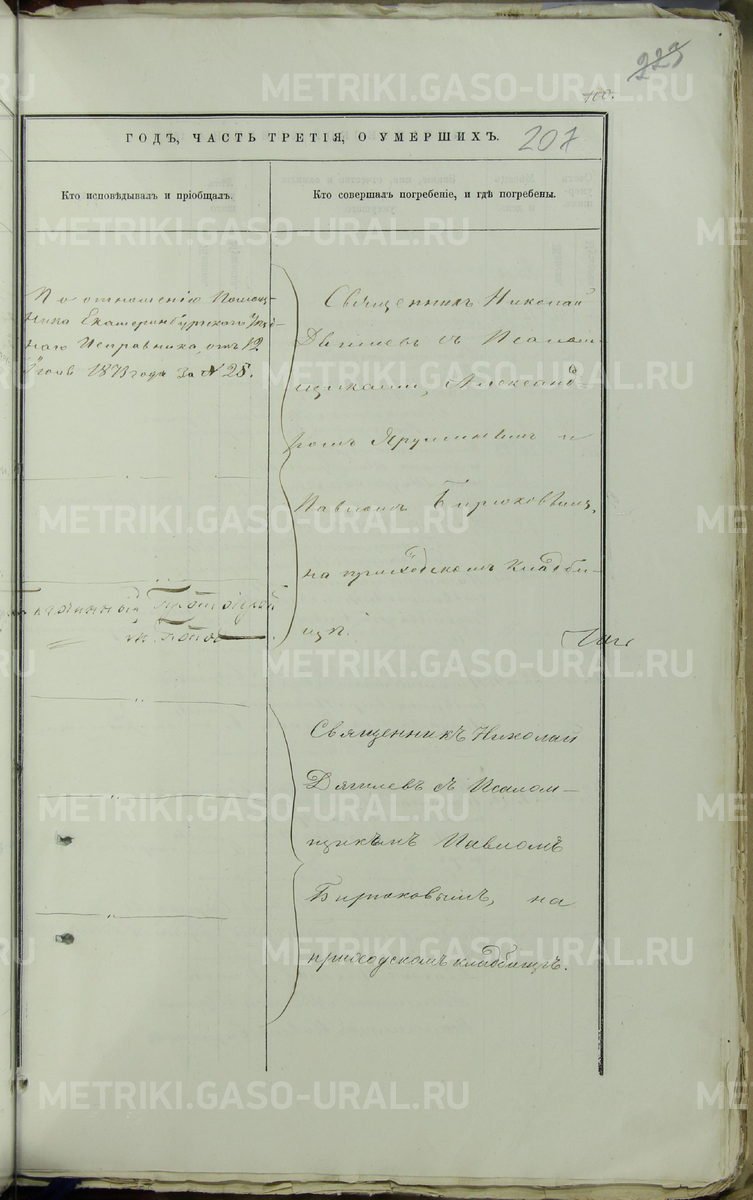 223
100.
ГОДЪ, ЧАСТЬ ТРЕТІЯ, О УМЕРШИХЪ.
207
Кто исповѣдывалъ и пріобщалъ.
Кто совершалъ погребеніе, и гдѣ погребены.
По отношенію Помощ-
ника Екатеринбургскаго Уѣзд-
наго Исправника, отъ 12
1873 года за № 28.
Священникъ Николай
Дягилевъ съ Псалом-
щиками, Александ-
ромъ Ярушинымъ и
Павломъ Бирюковымъ,
на приходскомъ кладби-
щѣ.
Священникъ Николай
Дягилевъ съ Псалом-
щикомъ Павломъ
Бирюковымъ, на
приходскомъ кладбищѣ.
METRIKI.GASO-URAL.RU